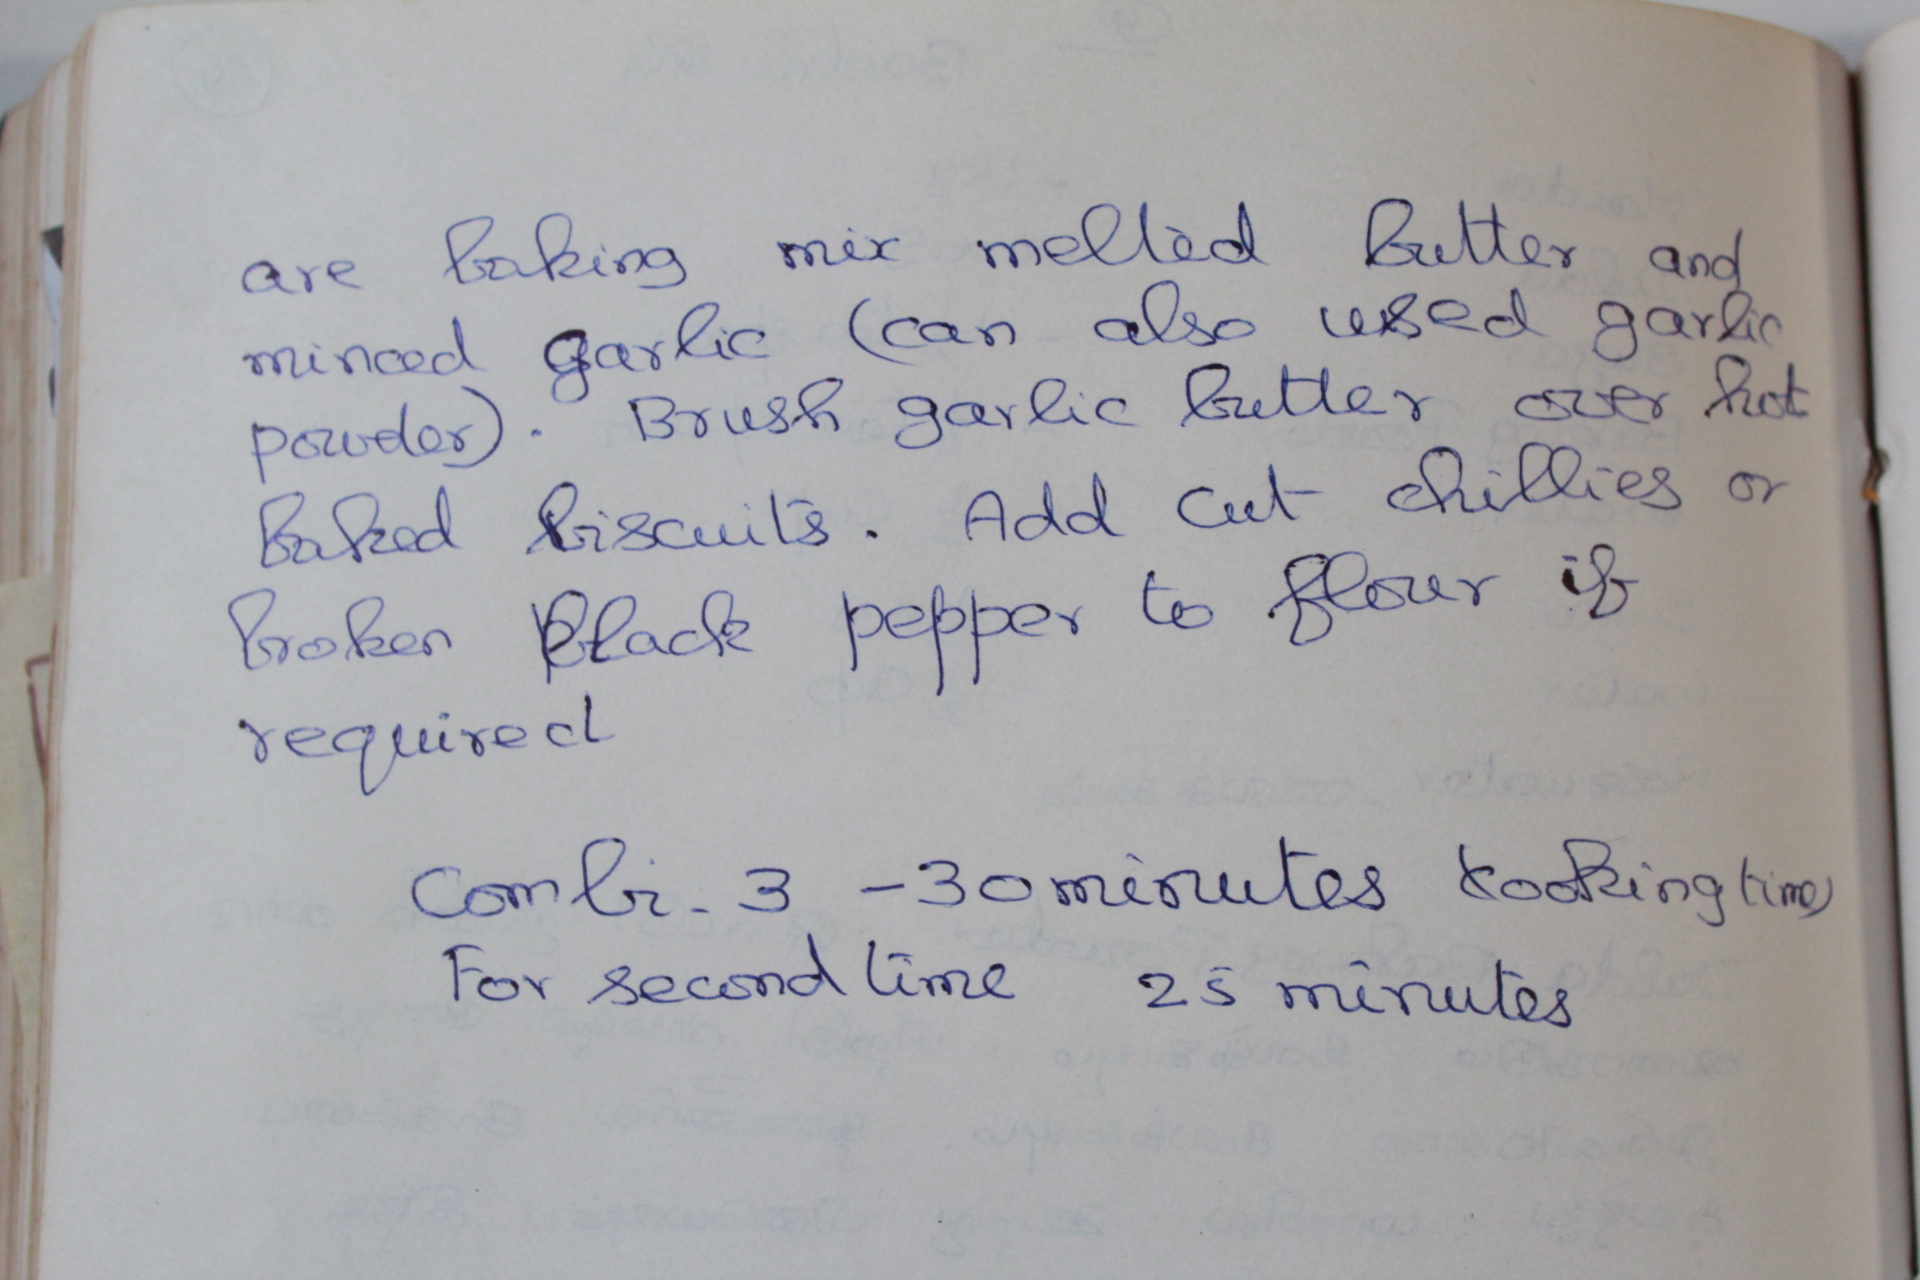 are baking mix melted butter and
minced garlic (can also used garlic
powder). Brush garlic butter over hot
baked biscuits. Add cut chillies or
broken black pepper to flour if
required
Combi-3 - 30 minutes cooking time
For second time 25 minutes